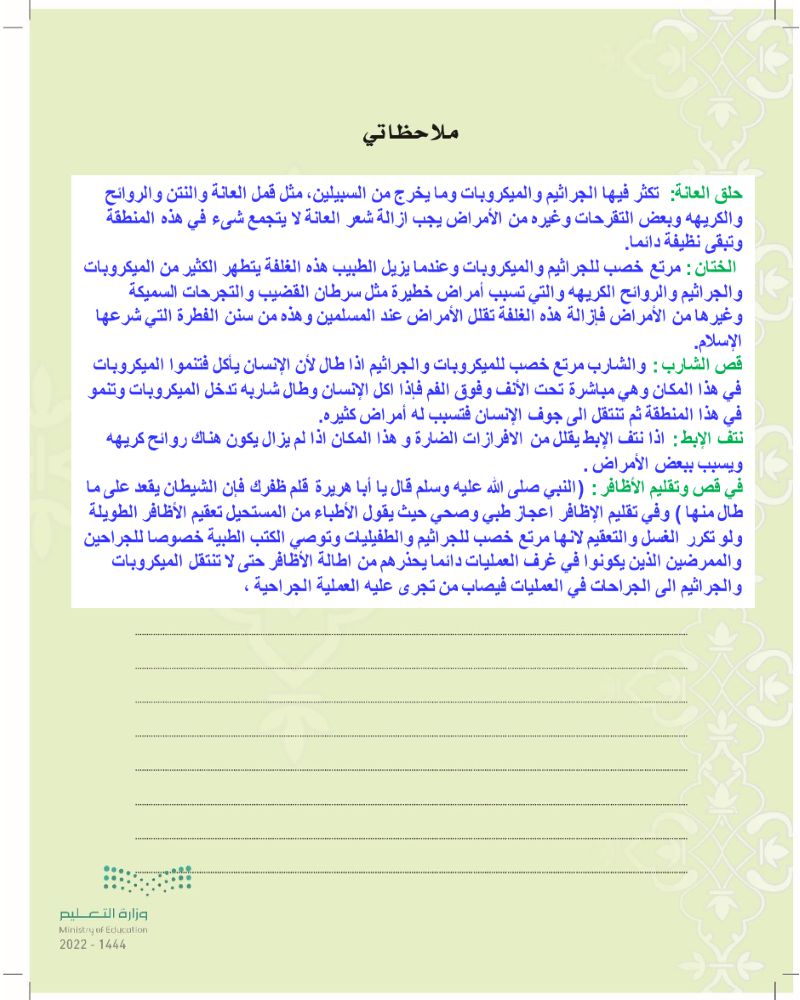 ملاحظاتي
حلق العانة: تكثر فيها الجراثيم والميكروبات وما يخرج من السبيلين، مثل قمل العانة والنتن والروائح
والكريهه وبعض التقرحات وغيره من الأمراض يجب ازالة شعر العانة لا يتجمع شىء في هذه المنطقة
وتبقى نظيفة دائما.
الختان : مرتع خصب للجراثيم والميكروبات وعندما يزيل الطبيب هذه الغلفة يتطهر الكثير من الميكروبات
والجراثيم والروائح الكريهه والتي تسبب أمراض خطيرة مثل سرطان القضيب والتجرحات السميكة
وغيرها من الأمراض فإزالة هذه الغلفة تقلل الأمراض عند المسلمين وهذه من سنن الفطرة التي شرعها
الإسلام.
قص الشارب : والشارب مرتع خصب للميكروبات والجراثيم اذا طال لأن الإنسان يأكل فتنموا الميكروبات
في هذا المكان وهي مباشرة تحت الأنف وفوق الفم فإذا اكل الإنسان وطال شاربه تدخل الميكروبات وتنمو
في هذا المنطقة ثم تنتقل الى جوف الإنسان فتسبب له أمراض كثيره.
نتف الإبط: اذا نتف الإبط يقلل من الافرازات الضارة و هذا المكان اذا لم يزال يكون هناك روائح كريهه
ويسبب ببعض الأمراض .
في قص وتقليم الأظافر : (النبي صلى الله عليه وسلم قال يا أبا هريرة قلم ظفرك فإن الشيطان يقعد على ما
طال منها ) وفي تقليم الإظافر اعجاز طبي وصحي حيث يقول الأطباء من المستحيل تعقيم الأظافر الطويلة
ولو تكرر الغسل والتعقيم لانها مرتع خصب للجراثيم والطفيليات وتوصي الكتب الطبية خصوصا للجراحين
والممرضين الذين يكونوا في غرف العمليات دائما يحذرهم من اطالة الأظافر حتى لا تنتقل الميكروبات
والجراثيم الى الجراحات في العمليات فيصاب من تجرى عليه العملية الجراحية ،
وزارة التعـليم
Ministry of Education
2022 - 1444